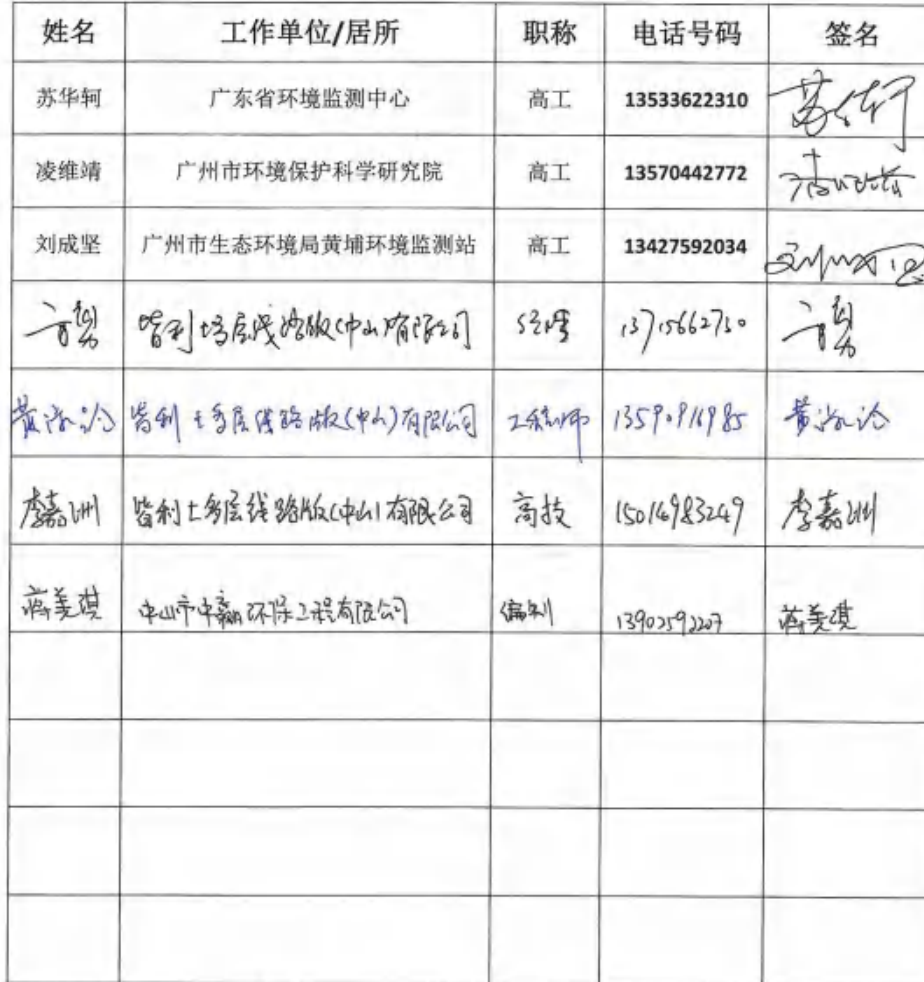 姓名 工作单位/居所 职称 电话号码 签名
苏华轲 广东省环境监测中心 高工 13533622310
凌维靖 广州市环境保护科学研究院 高工 13570442772
刘成坚 广州市生态环境局黄埔环境监测站 高工 13427592034
皆利士多层线路版(中山)有限公司 经理 13715662730
皆利士多层线路版(中山)有限公司 工程师 13590916985
李嘉洲 皆利士多层线路版(中山)有限公司 高技 15014983249 李嘉洲
蒋美琪 中山市中赢环保工程有限公司 编制 13902592207 蒋美琪